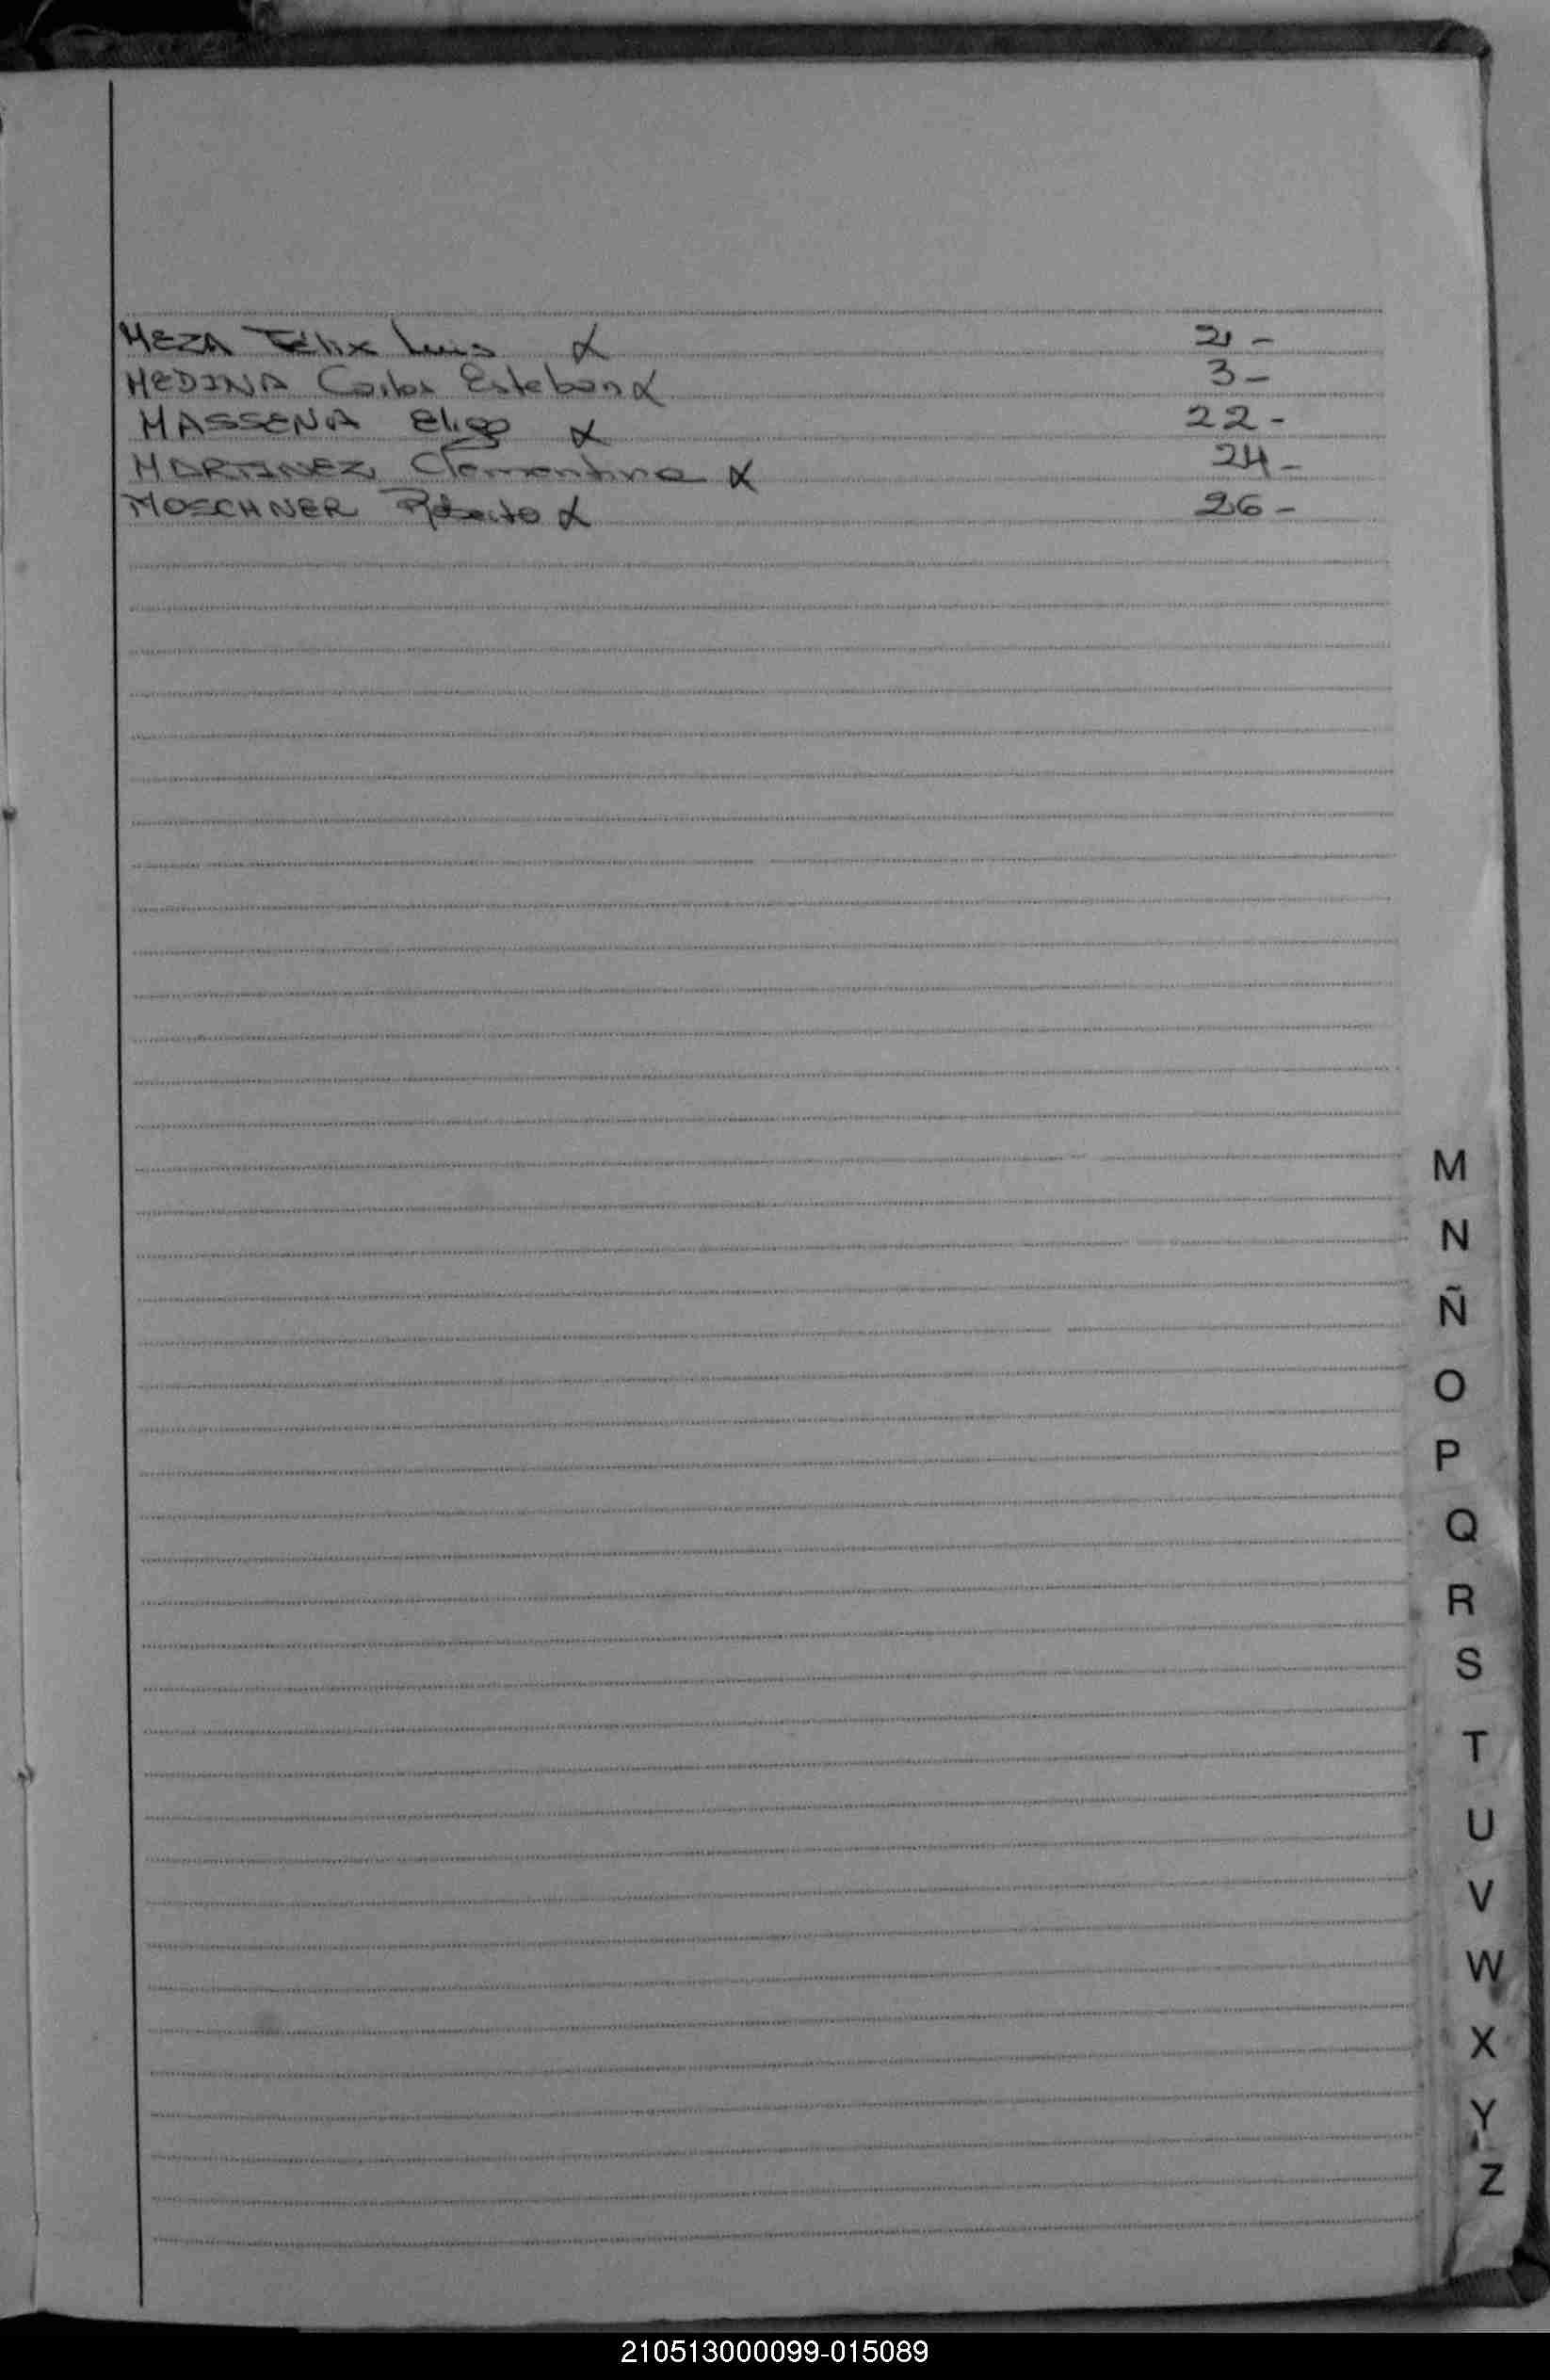 MEZA Félix Luis α 2 -
MEDINA Carlos Esteban α 3 -
MASSENA Eligo α 22 -
MARTINEZ Clementina α 24 -
MOSCHNER Roberto α 26 -
M
N
Ñ
O
P
Q
R
S
T
U
V
W
X
Y
Z
210513000099-015089